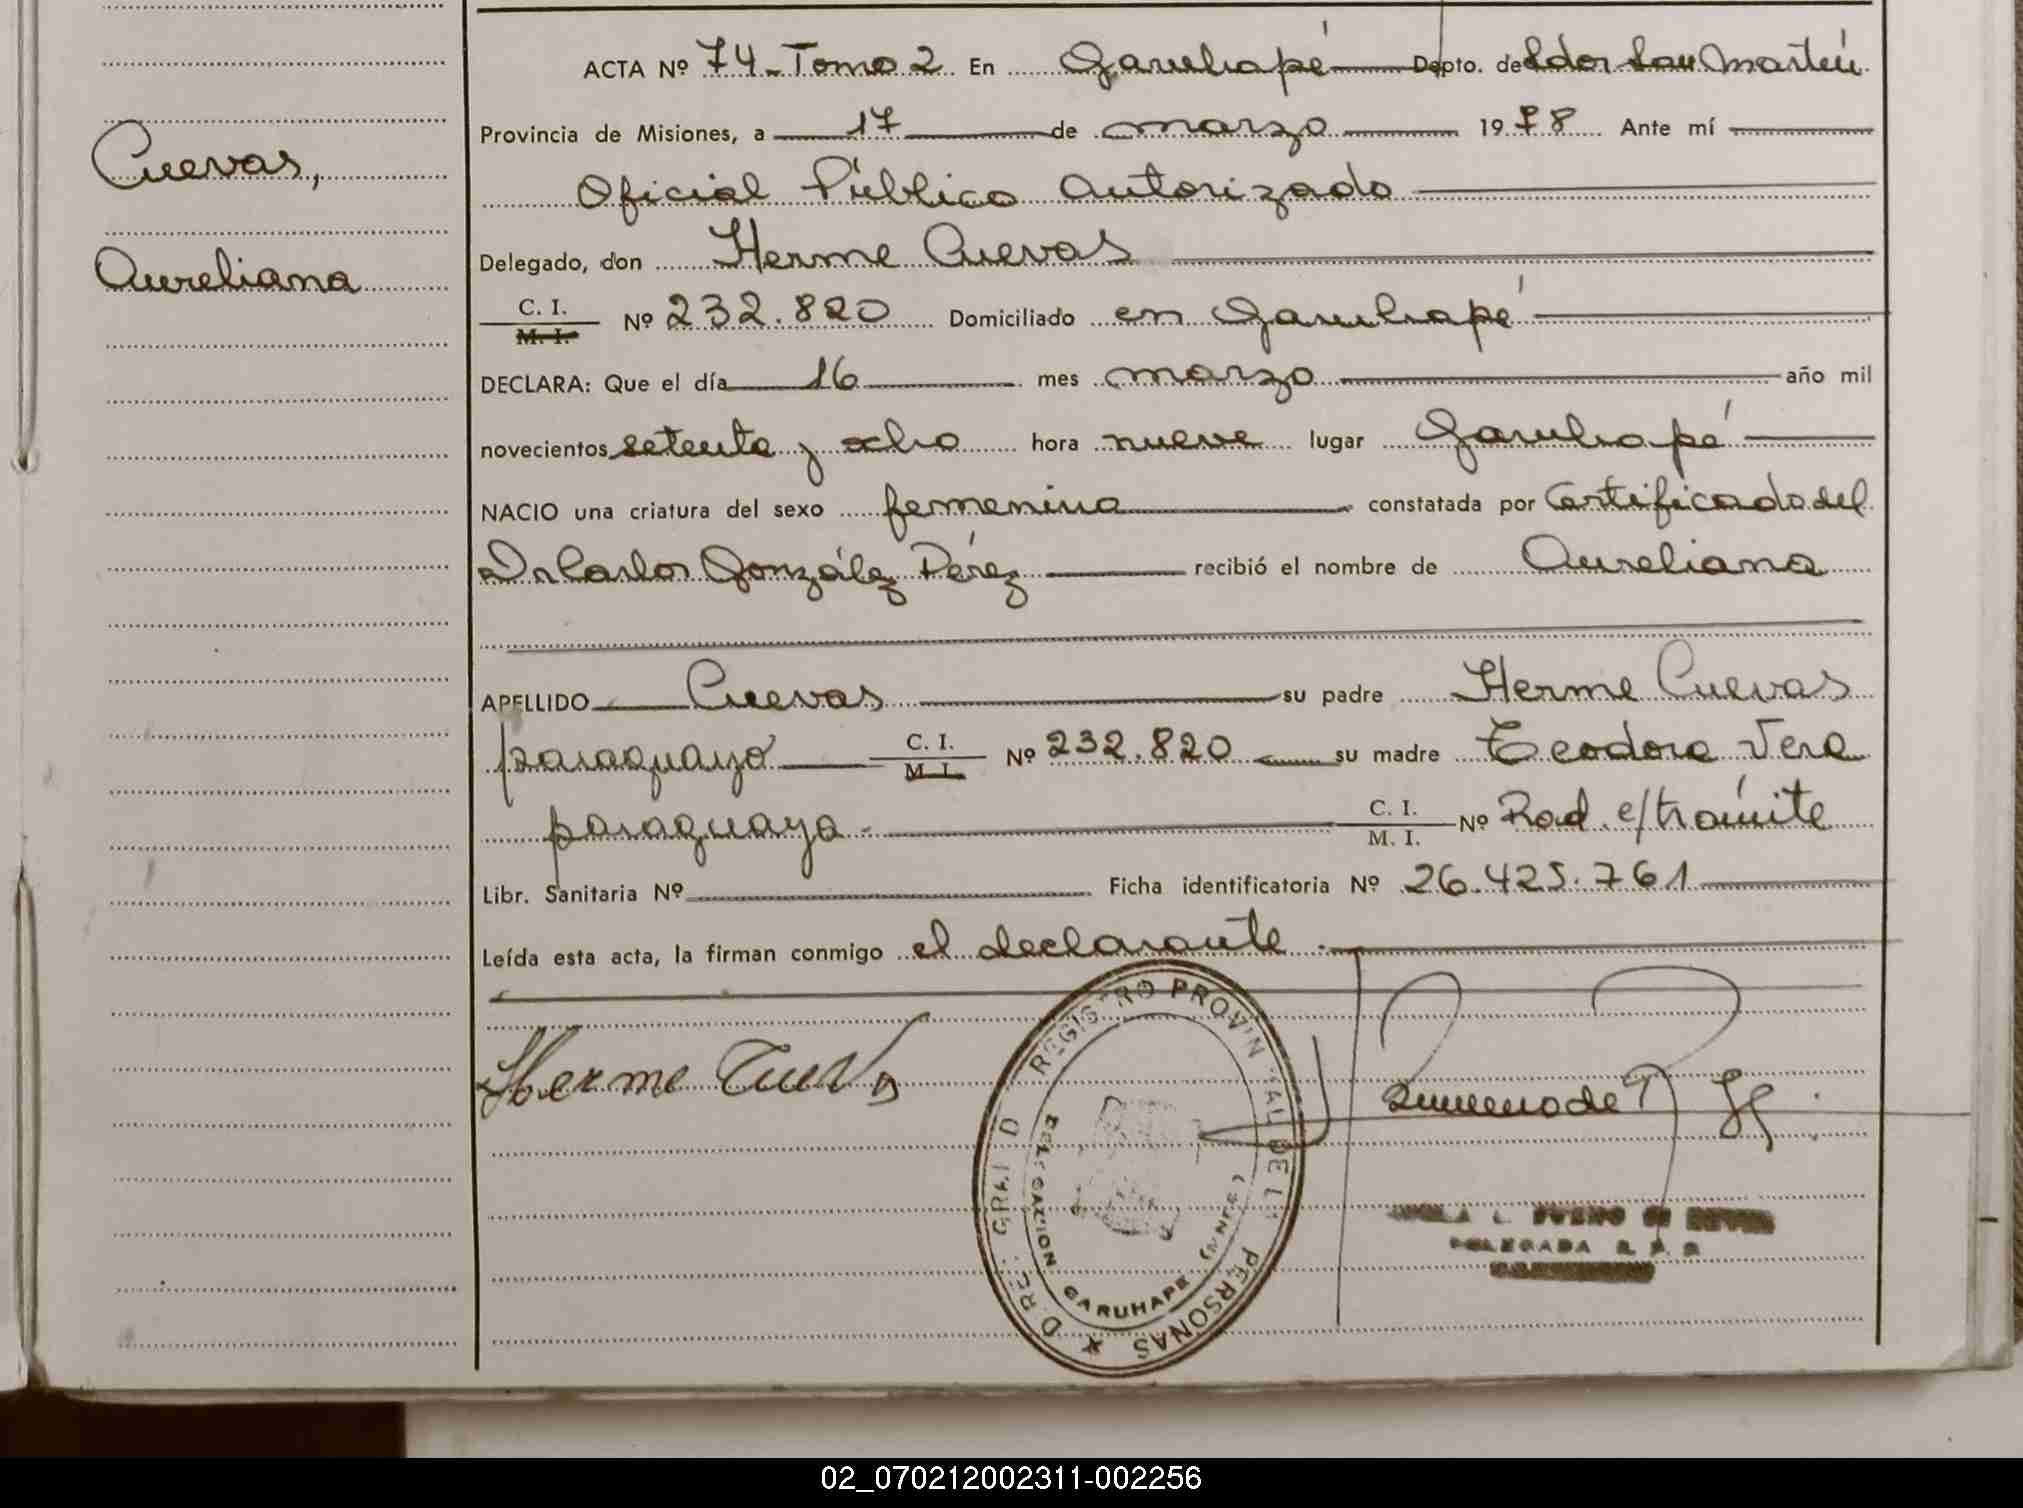 Cuevas,
Aureliana
ACTA Nº 74 - Tomo 2 En Garuhapé Depto. de Ldor San Martín
Provincia de Misiones, a 17 de marzo 1978 Ante mí
Oficial Público Autorizado
Delegado, don Herme Cuevas
C. I.
M. I. Nº 232.820 Domiciliado en Garuhapé
DECLARA: Que el día 16 mes marzo año mil
novecientos setenta y ocho hora nueve lugar Garuhapé
NACIO una criatura del sexo femenina constatada por Certificado del
Dr Carlos González Pérez recibió el nombre de Aureliana
APELLIDO Cuevas su padre Herme Cuevas
paraguayo C. I.
M. I. Nº 232.820 su madre Teodora Vera
paraguaya - C. I.
M. I. Nº Rad. e/trámite
Libr. Sanitaria Nº Ficha identificatoria Nº 26.425.761
Leída esta acta, la firman conmigo el declarante.
Herme Cuevas
REGISTRO PROVINCIAL DE LAS PERSONAS
DELEGACION GARUHAPE (MNES)
DELEGADA R. P. P.
02_070212002311-002256